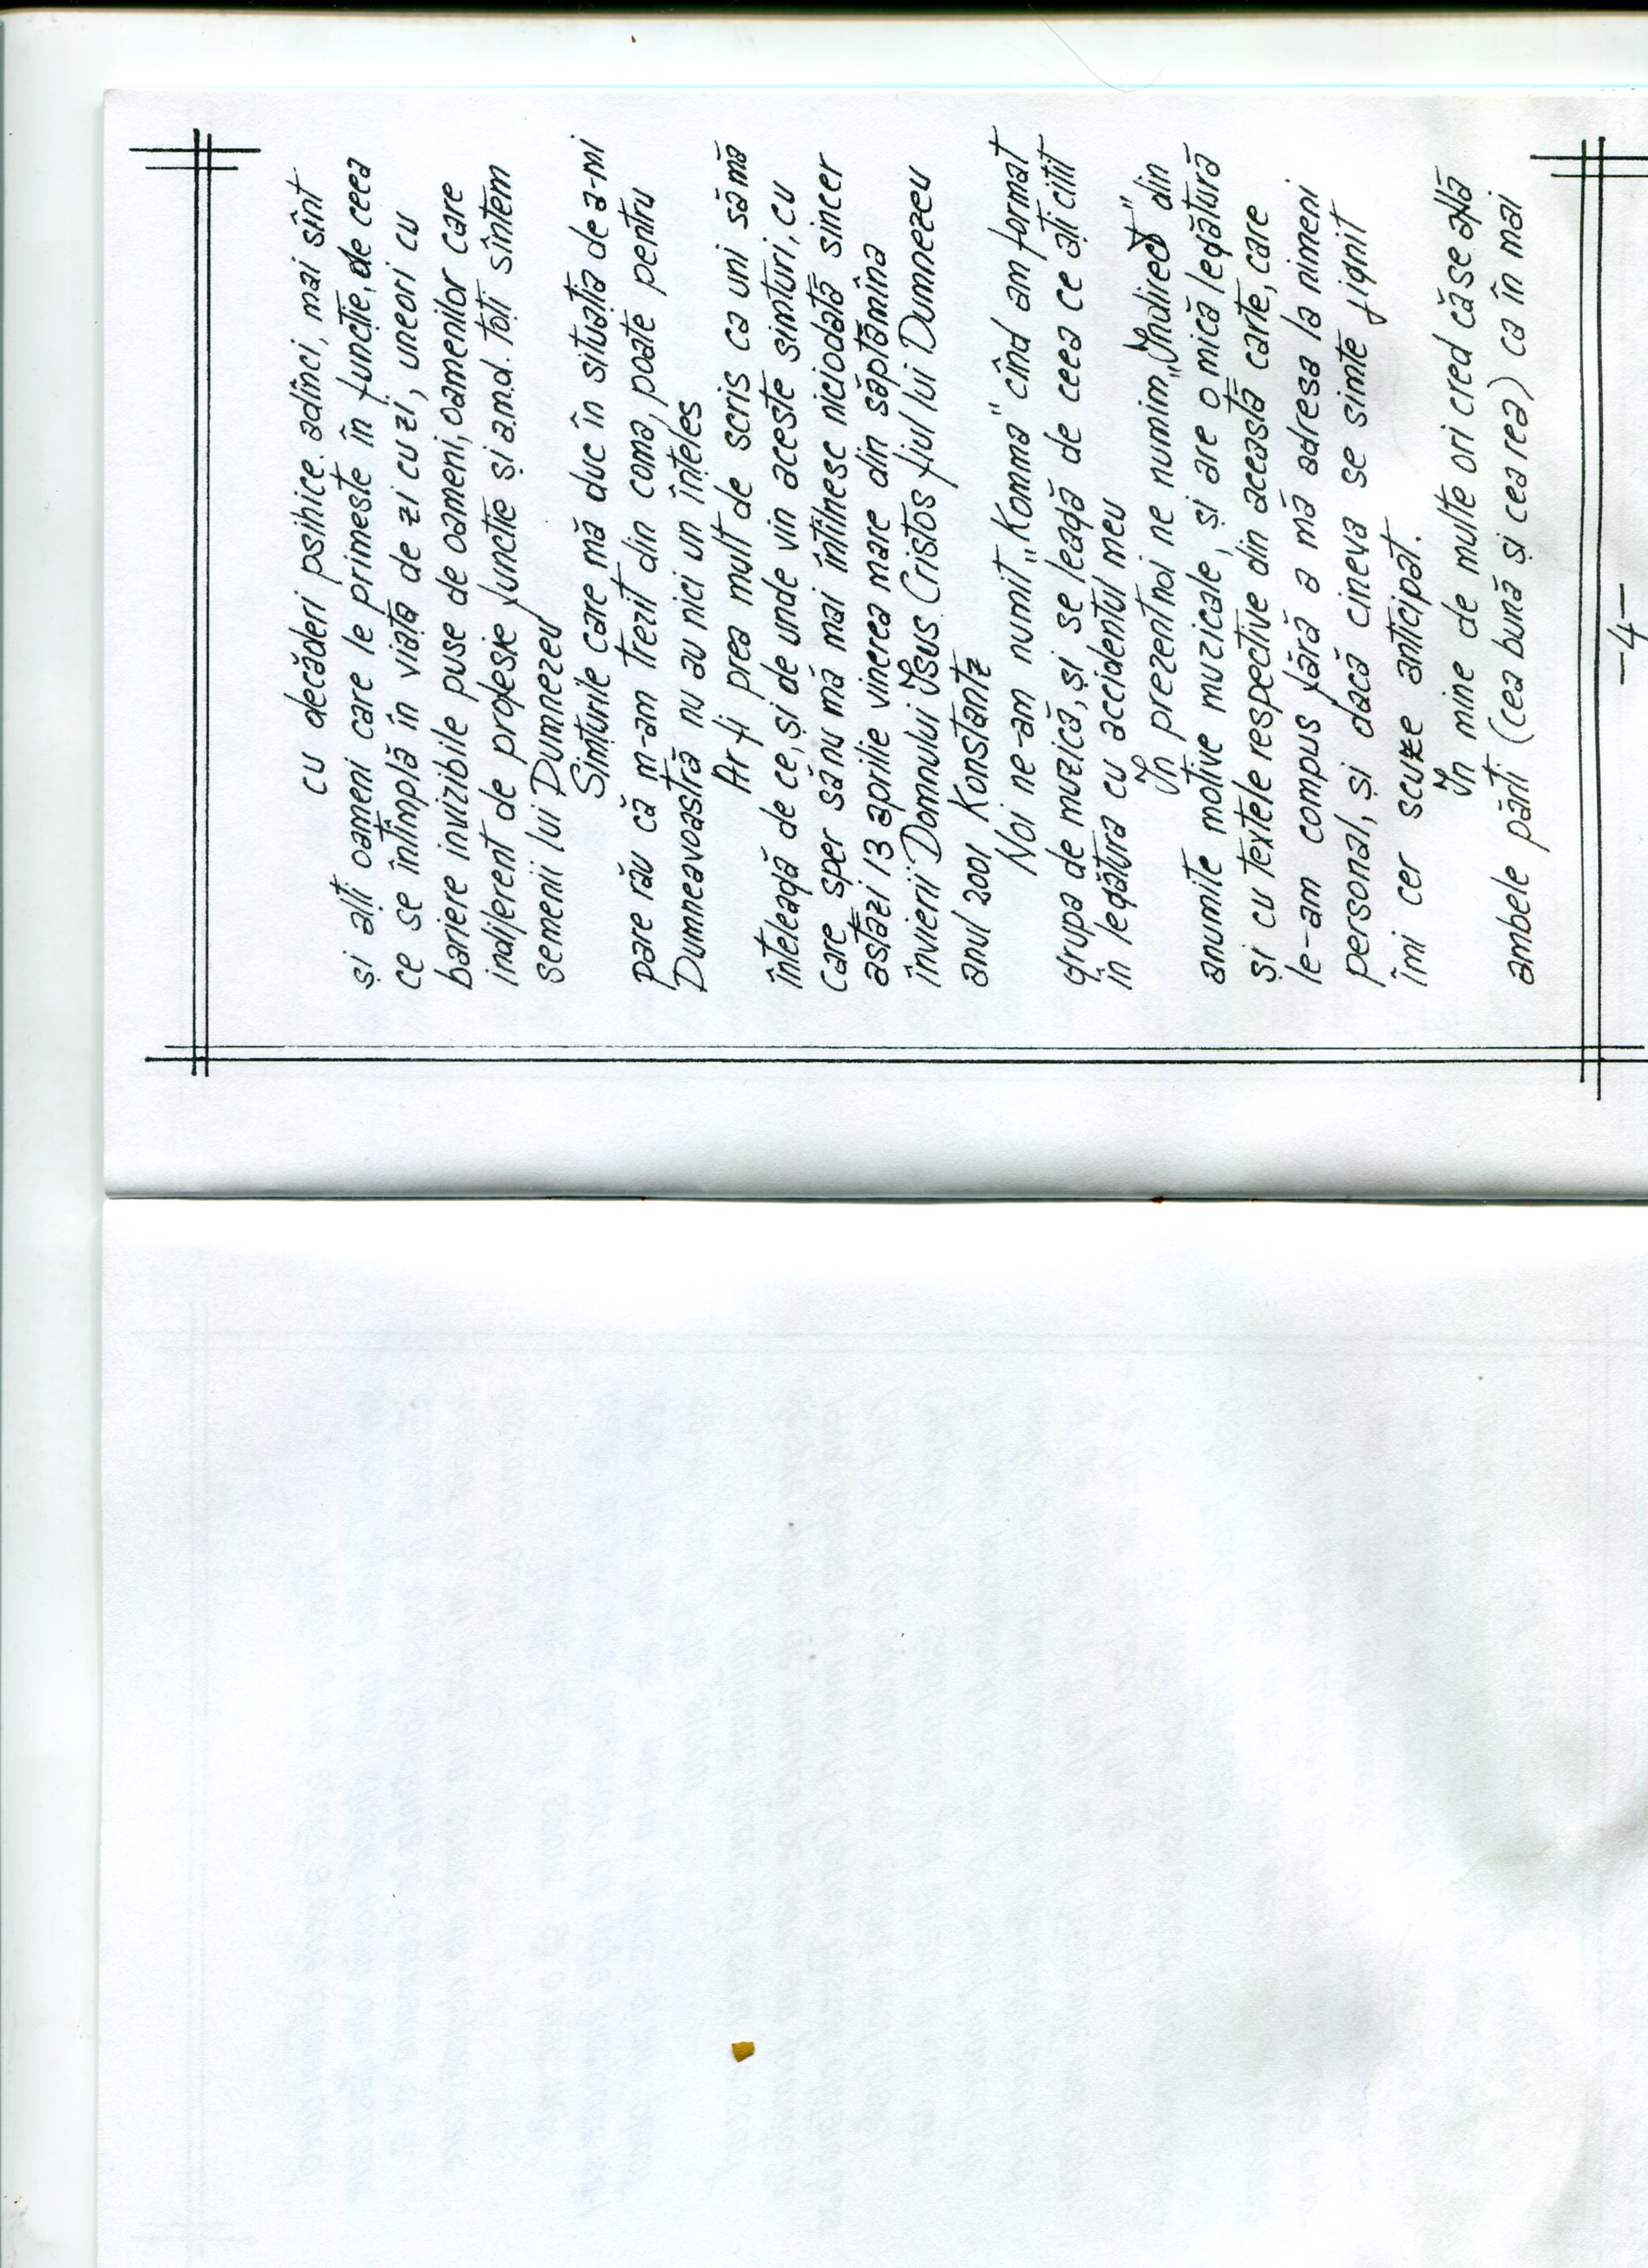 cu decăderi psihice adînci, mai sînt
și alți oameni care le primeste în funcție, de ceea
ce se întîmplă în viața de zi cu zi, uneori cu
bariere invizibile puse de oameni, oamenilor care
indiferent de profesie functie și a.m.d. toți sîntem
semenii lui Dumnezeu
Simțurile care mă duc în situația de a-mi
pare rău că m-am trezit din coma, poate pentru
Dumneavoastră nu au nici un înțeles
Ar fi prea mult de scris ca uni să mă
înteleagă de ce, și de unde vin aceste simturi, cu
care sper să nu mă mai întîlnesc niciodată sincer
astăzi 13 aprilie vinerea mare din săptămîna
învierii Domnului Isus Cristos fiul lui Dumnezeu
anul 2001 Konstantz
Noi ne-am numit „Komma" cînd am format
grupa de muzică, și se leagă de ceea ce ați citit
în legătura cu accidentul meu
In prezent noi ne numim „Indirect" din
anumite motive muzicale, și are o mică legătură
și cu textele respective din această carte, care
le-am compus fără a mă adresa la nimeni
personal, și dacă cineva se simte jignit
îmi cer scuze anticipat.
In mine de multe ori cred că se află
ambele părti (cea bună și cea rea) ca în mai
-4-